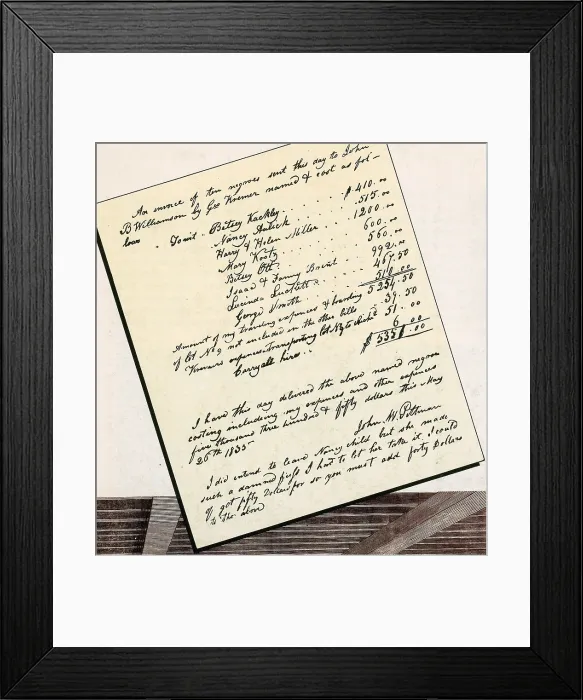 An invoice of ten negroes sent this day to John
B Williamson by Geo Kremer named & cost as fol-
lows. To wit. Betsey Kackley . . . . . $410.00
Nancy Aulick . . . . . 515.00
Harry & Helen Miller . . . 1200.00
Mary Kootz . . . . . 600.00
Betsey Ott . . . . . 560.00
Isaac & Fanny Brent . . 992.00
Lucinda Luckett . . . . 467.50
George Smith . . . . 510.00
5254.50
Amount of my traveling expenses & boarding
of lot No 9 not included in the other bills . . 39.50
Kremers expenses transporting lot No 9 to 51.00
Carryall hire . . 6 00
$ 5351.00
I have this day delivered the above named negroes
costing including my expenses and other expenses
five thousand three hundred & fifty dollars this May
26th 1835
John. W. Pittman
I did intend to leave Nancy child but she made
such a damned fuss I had to let her take it I could
of got fifty Dollars for so you must add forty Dollars
to the above